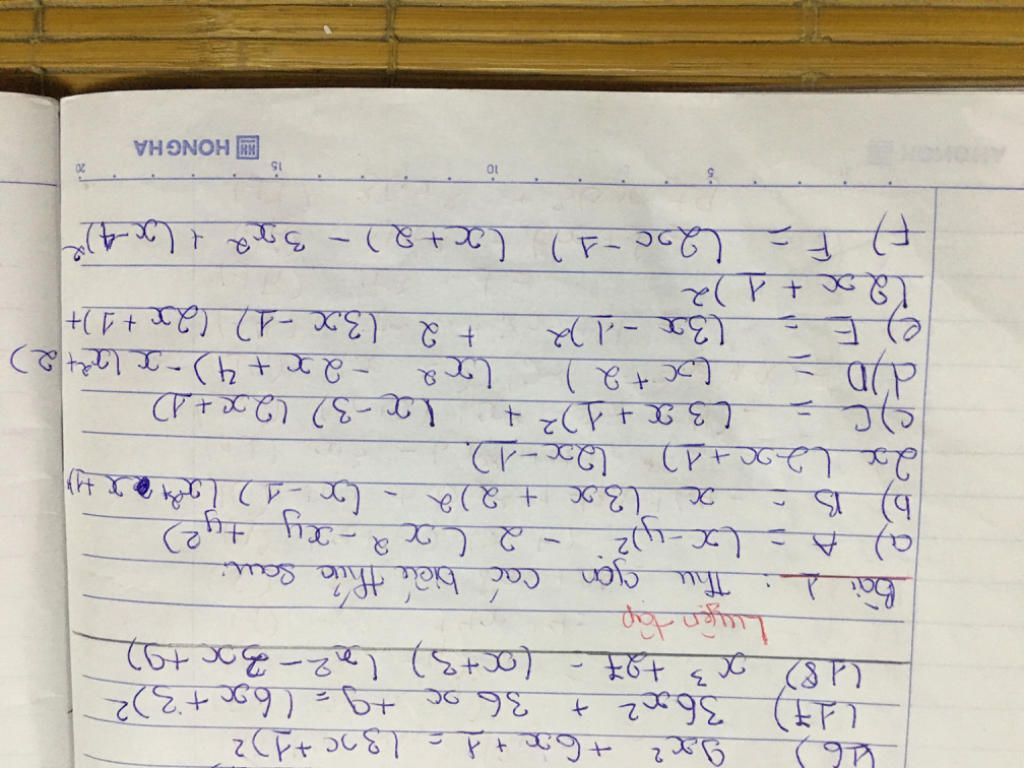 (16) 9x² + 6x + 1 = (3x + 1)²
(17) 36x² + 36x + 9 = (6x + 3)²
(18) x³ + 27 = (x + 3) (x² - 3x + 9)
Luyện tập
Bài 1 : Thu gọn các biểu thức sau:
a) A = (x - y)² - 2 (x² - xy + y²)
b) B = x (3x + 2)² - (x - 1) (x² + x + 1)
2x (2x + 1) (2x - 1).
c) C = (3x + 1)² + (x - 3) (2x + 1)
d) D = (x + 2) (x² - 2x + 4) - x (x² + 2)
e) E = (3x - 1)² + 2 (3x - 1) (2x + 1) +
(2x + 1)²
F) F = (2x - 1) (x + 2) - 3x² + (x - 4)²
5 10 15 20
HONG HA